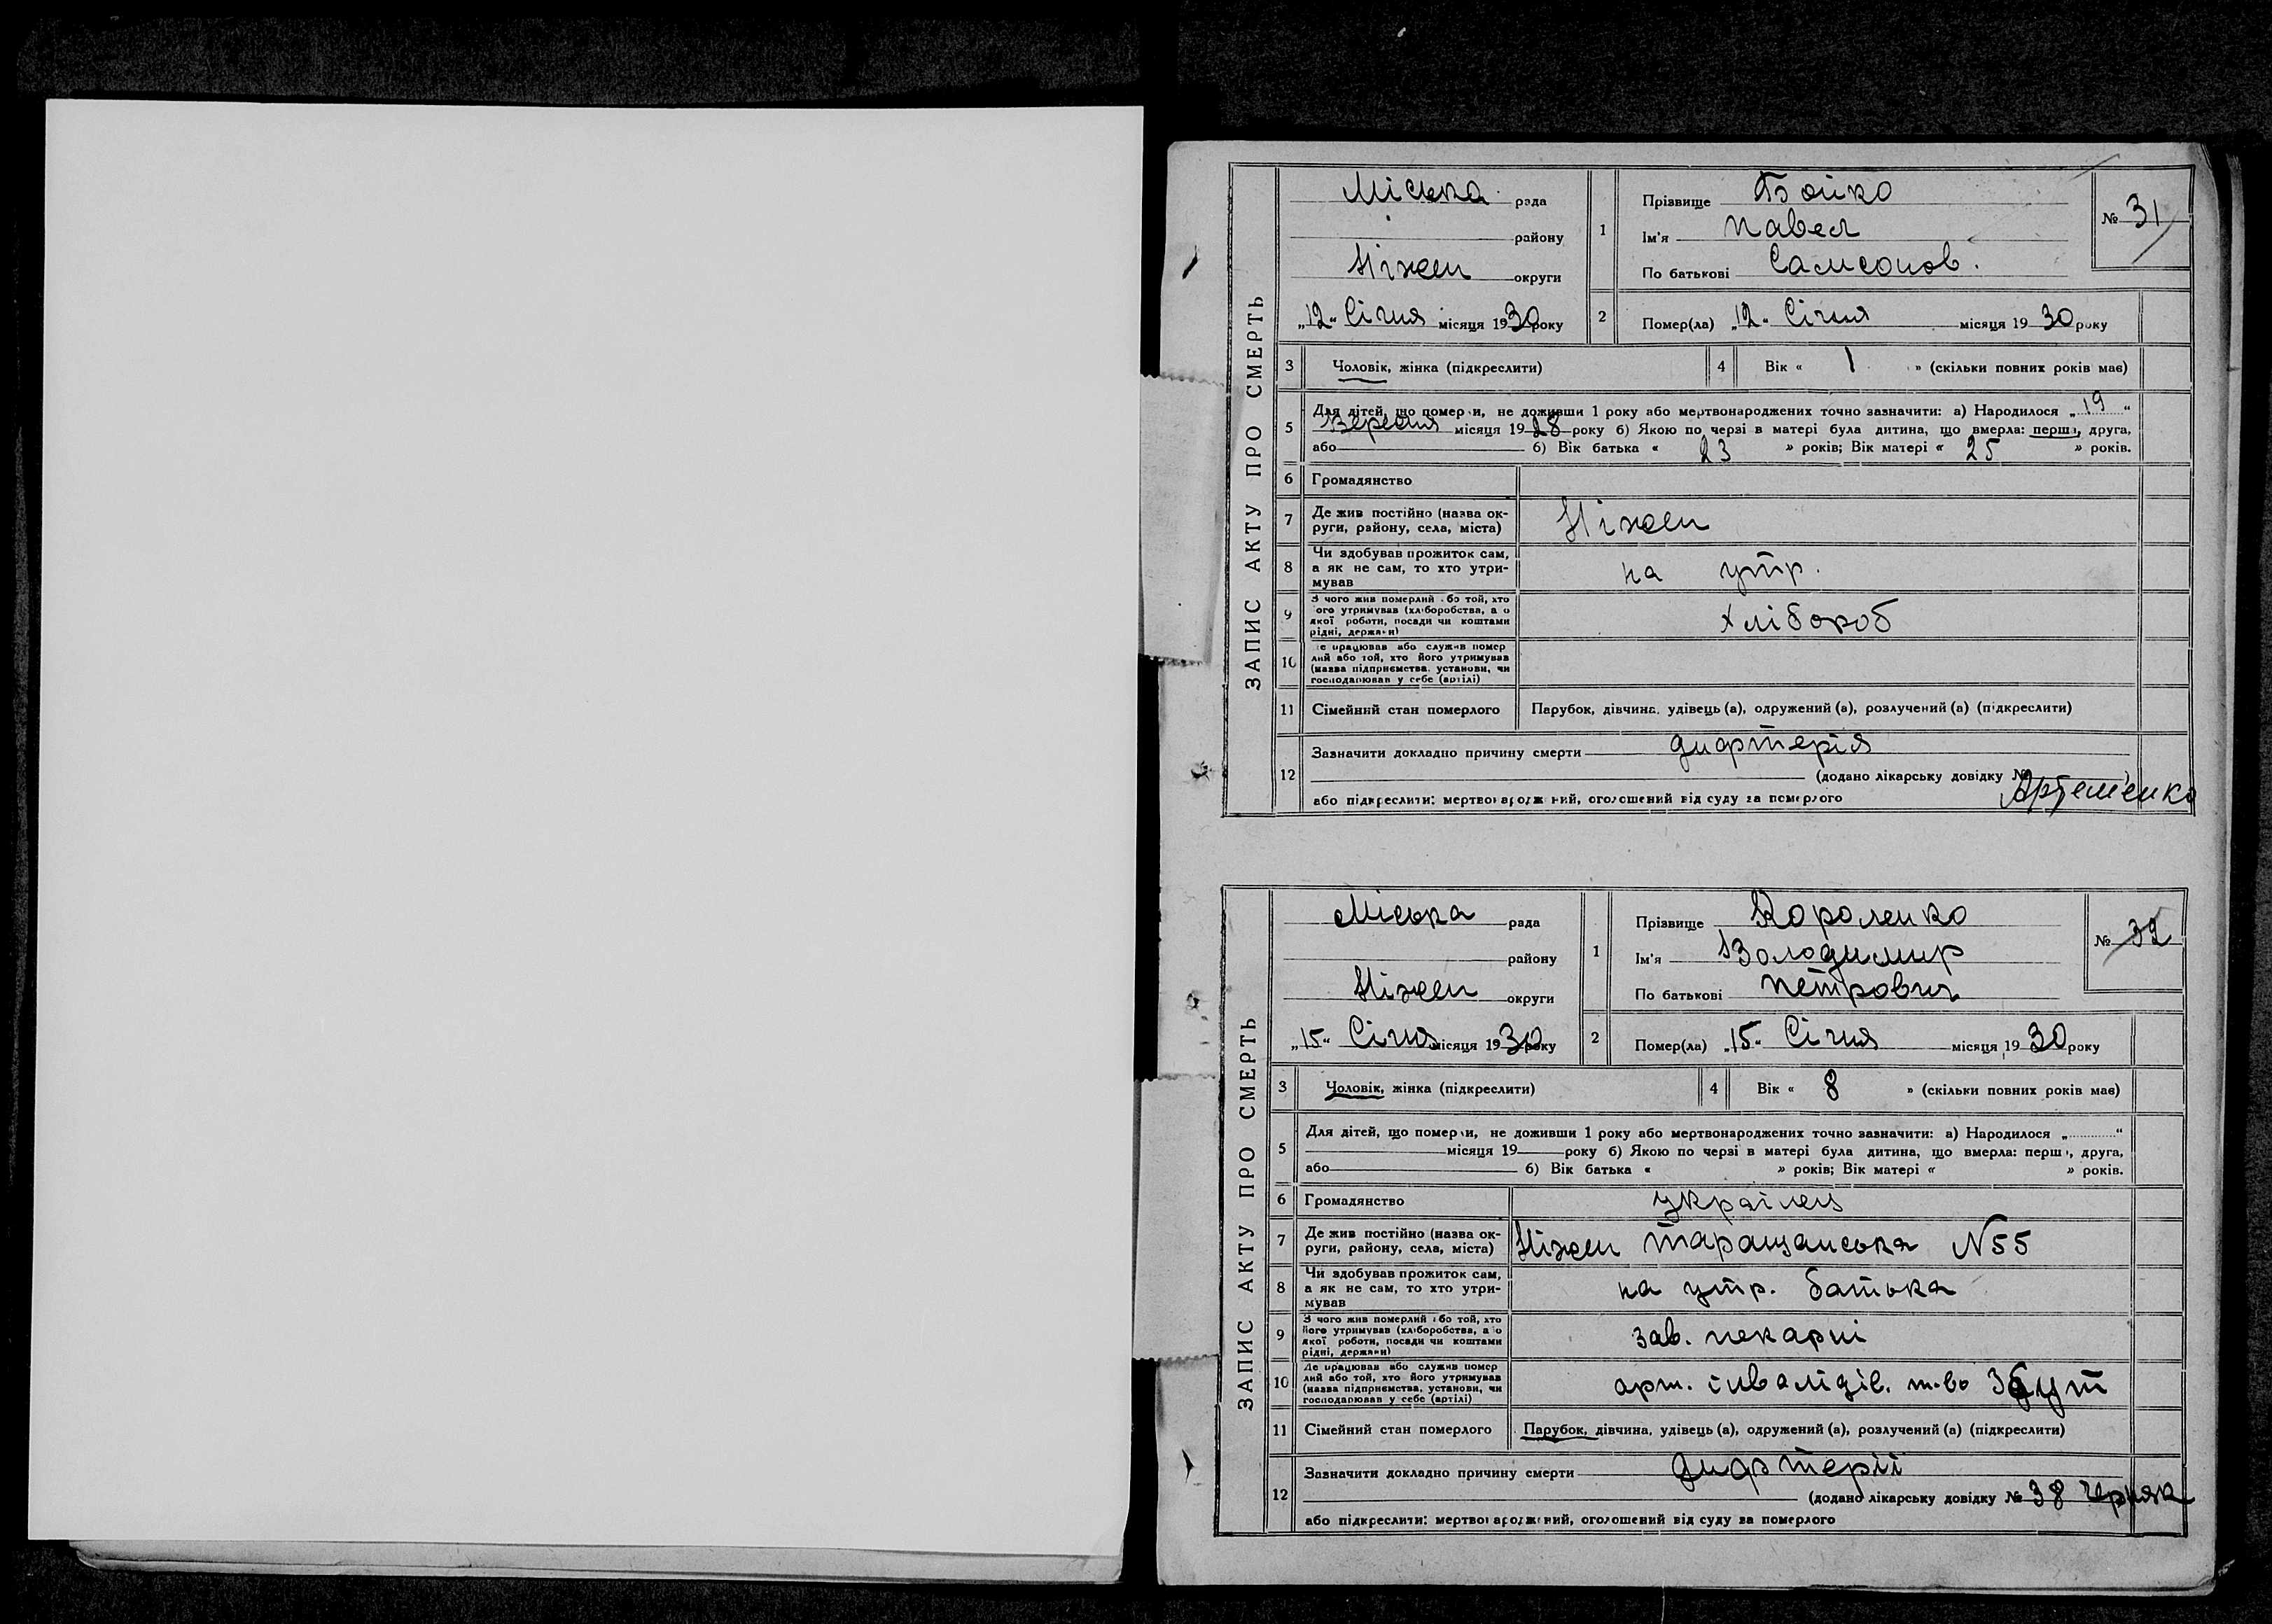 ЗАПИС АКТУ ПРО СМЕРТЬ
Міська рада
району
Ніжен округи
„12“ Січня місяця 1930 року
1 Прізвище Бойко
Ім'я Павел
По батькові Самсонов.
№ 31
2 Помер(ла) „12“ Січня місяця 19 30 року
3 Чоловік, жінка (підкреслити)
4 Вік « 1 » (скільки повних років має)
5 Для дітей, що померли, не доживши 1 року або мертвонароджених точно зазначити: а) Народилося „ 19 “
Вересня місяця 19 28 року б) Якою по черзі в матері була дитина, що вмерла: перша, друга,
або б) Вік батька « 23 » років; Вік матері « 25 » років.
6 Громадянство
7 Де жив постійно (назва ок-
руги, району, села, міста) Ніжен
8 Чи здобував прожиток сам,
а як не сам, то хто утри-
мував на утр.
9 З чого жив померлий або той, хто
його утримував (хліборобства, або
якої роботи, посади чи коштами
рідні, держави) хлібороб
10 Де працював або служив помер
лий або той, хто його утримував
(назва підприємства, установи, чи
господарював у себе (артілі)
11 Сімейний стан померлого Парубок, дівчина, удівець (а), одружений (а), розлучений (а) (підкреслити)
12 Зазначити докладно причину смерти дифтерія
(додано лікарську довідку №
або підкреслити: мертвонароджений, оголошений від суду за померлого Артеменко
ЗАПИС АКТУ ПРО СМЕРТЬ
Міська рада
району
Ніжен округи
„15“ Січня місяця 1930 року
1 Прізвище Короленко
Ім'я Володимир
По батькові Петрович
№ 32
2 Помер(ла) „15“ Січня місяця 19 30 року
3 Чоловік, жінка (підкреслити)
4 Вік « 8 » (скільки повних років має)
5 Для дітей, що померли, не доживши 1 року або мертвонароджених точно зазначити: а) Народилося „ “
місяця 19 року б) Якою по черзі в матері була дитина, що вмерла: перша, друга,
або б) Вік батька « » років; Вік матері « » років.
6 Громадянство українец
7 Де жив постійно (назва ок-
руги, району, села, міста) Ніжен Таращанська N 55
8 Чи здобував прожиток сам,
а як не сам, то хто утри-
мував на утр. батька
9 З чого жив померлий або той, хто
його утримував (хліборобства, або
якої роботи, посади чи коштами
рідні, держави) зав. пекарні
10 Де працював або служив помер
лий або той, хто його утримував
(назва підприємства, установи, чи
господарював у себе (артілі) арт. інвалідів. т-во Збут
11 Сімейний стан померлого Парубок, дівчина, удівець (а), одружений (а), розлучений (а) (підкреслити)
12 Зазначити докладно причину смерти дифтерії
(додано лікарську довідку № 38 Черняк
або підкреслити: мертвонароджений, оголошений від суду за померлого